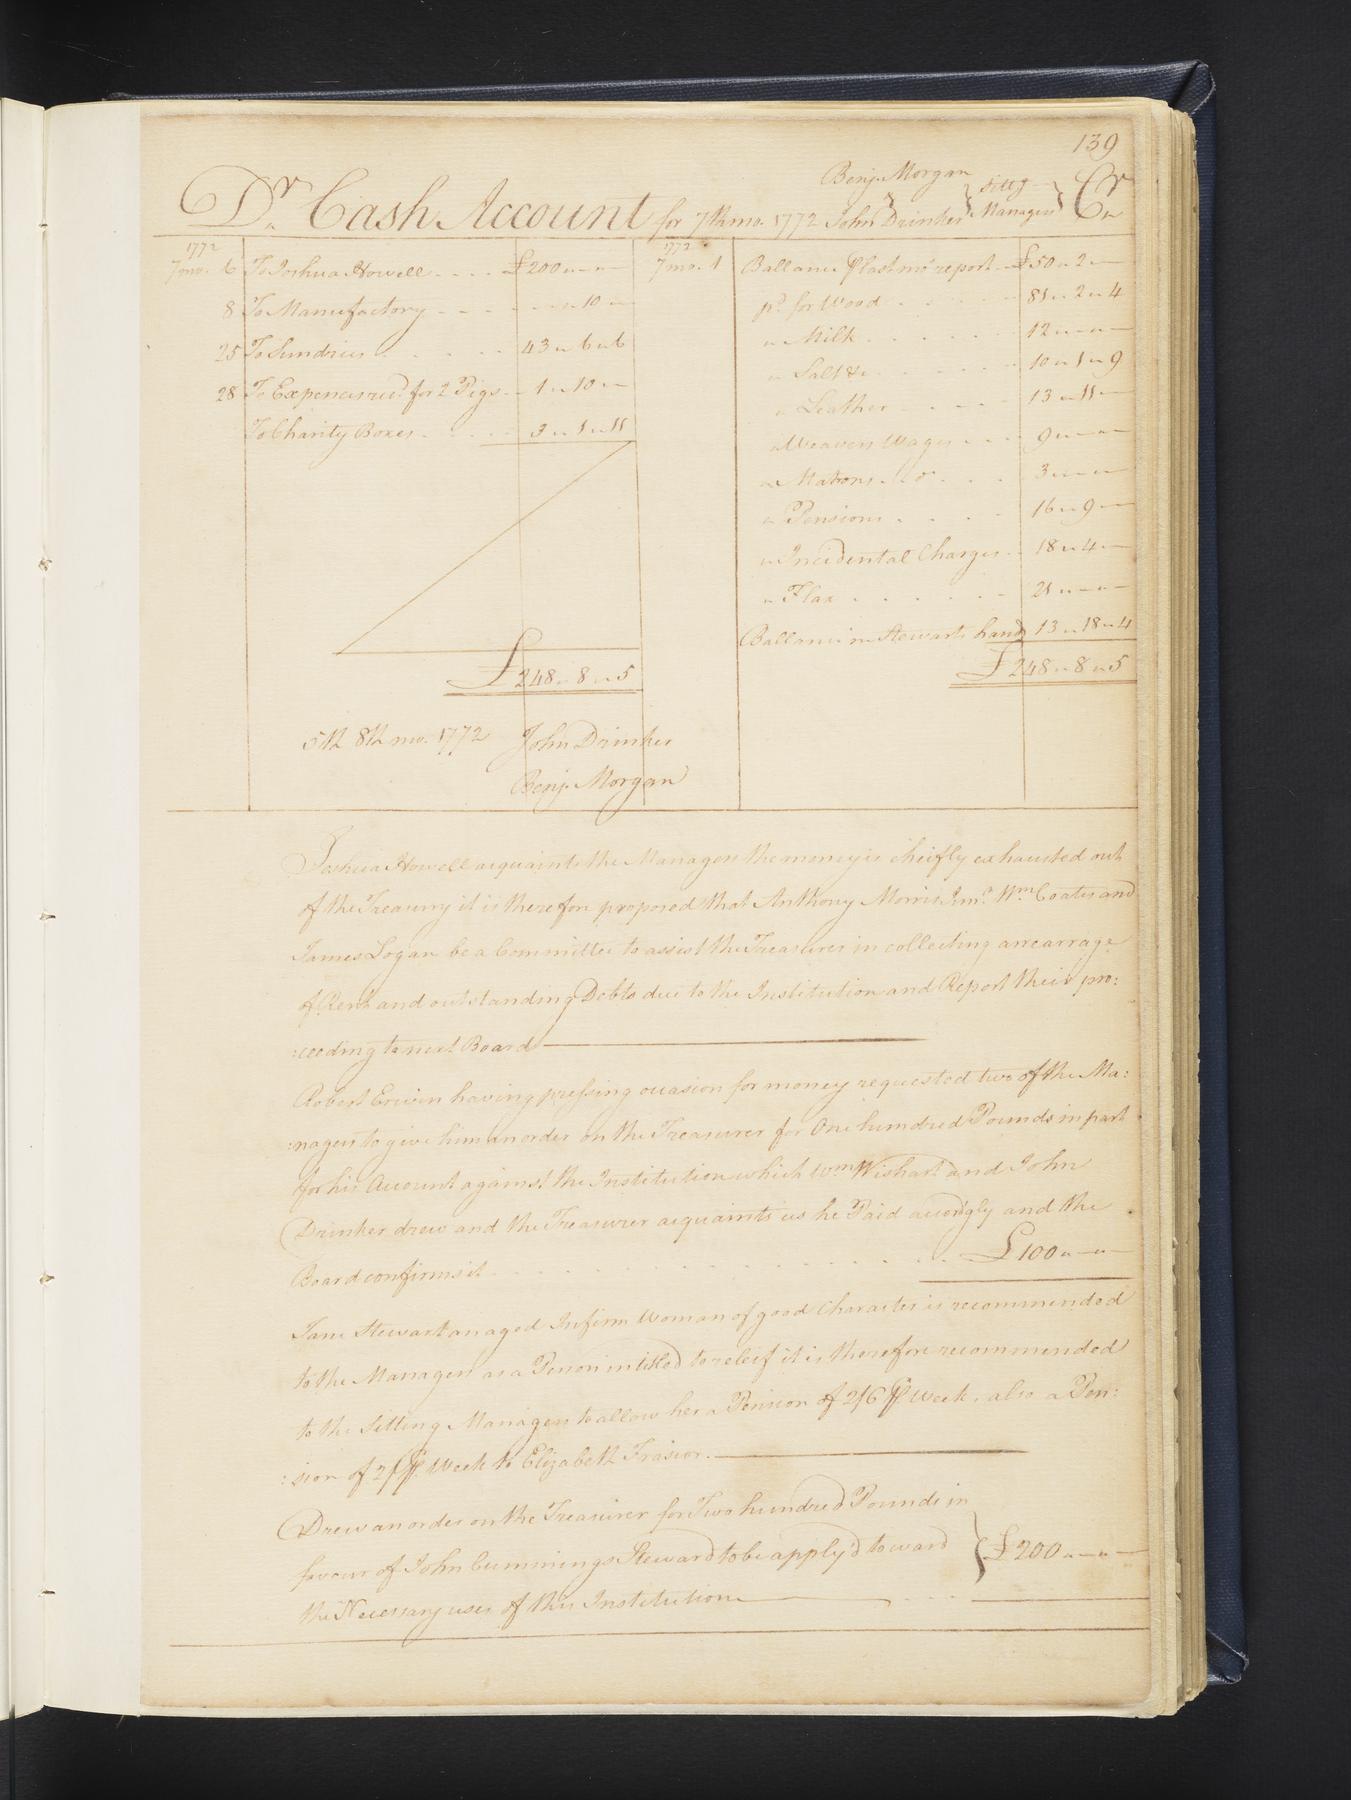 139
Benj. Morgan
Dr. Cash Account for 7th mo. 1772 John Drinker } Sittg Managers } Cr.
1772
7 mo. 6 To Joshua Howell - - - - £200 " — " —
8 To Manufactory - - - - - - " 10 " —
25 To Sundries . . . . . 43 " 6 " 6
28 To Expences recd. for 2 Pigs - - 1 " 10 " —
To Charity Boxes - . . . . 3 " 1 " 11
£248 " 8 " 5
1772
7 mo. 1 Ballance ⅌ last mo. report - £50 " 2 " —
pd. for Wood . . . . . 81 " 2 " 4
" Milk . . . . . 12 " — " —
" Salt &c . . . . . 10 " 1 " 9
" Leather . . . . 13 " 11 " —
" Weavers Wages . . . 9 " — " —
" Matrons . do. . . . 3 " — " —
" Pensions . . . . 16 " 9 " —
" Incidental Charges . . 18 " 4 " —
" Flax . . . . . . 21 " — " —
Ballance in Stewarts hands 13 " 18 " 4
£248 " 8 " 5
5th 8th mo. 1772 John Drinker
Benj. Morgan
Joshua Howell acquaints the Managers the money is cheifly exhausted out
of the Treasury it is therefore proposed that Anthony Morris Junr. Wm. Coates and
James Logan be a Committee to assist the Treasurer in collecting arrearage
of Rents and outstanding Debts due to the Institution and Report their pro:
:ceeding to next Board
Robert Erwin having pressing occasion for money requested two of the Ma:
:nagers to give him an order on the Treasurer for One hundred Pounds in part
for his Account against the Institution which Wm Wishart and John
Drinker drew and the Treasurer acquaints us he Paid accordgly and the
Board confirms it . . . . . . . . . £100 " — " —
Jane Stewart an aged Infirm Woman of good Character is recommended
to the Managers as a Person intitled to releif it is therefore recommended
to the Sitting Managers to allow her a Pension of 2/6 ⅌ Week, also a Pen:
:sion of 2/ ⅌ Week to Elizabeth Frasior.
Drew an order on the Treasurer for Two hundred Pounds in
favour of John Cummings Steward to be apply'd toward } £200 " — " —
the Necessary uses of this Institution